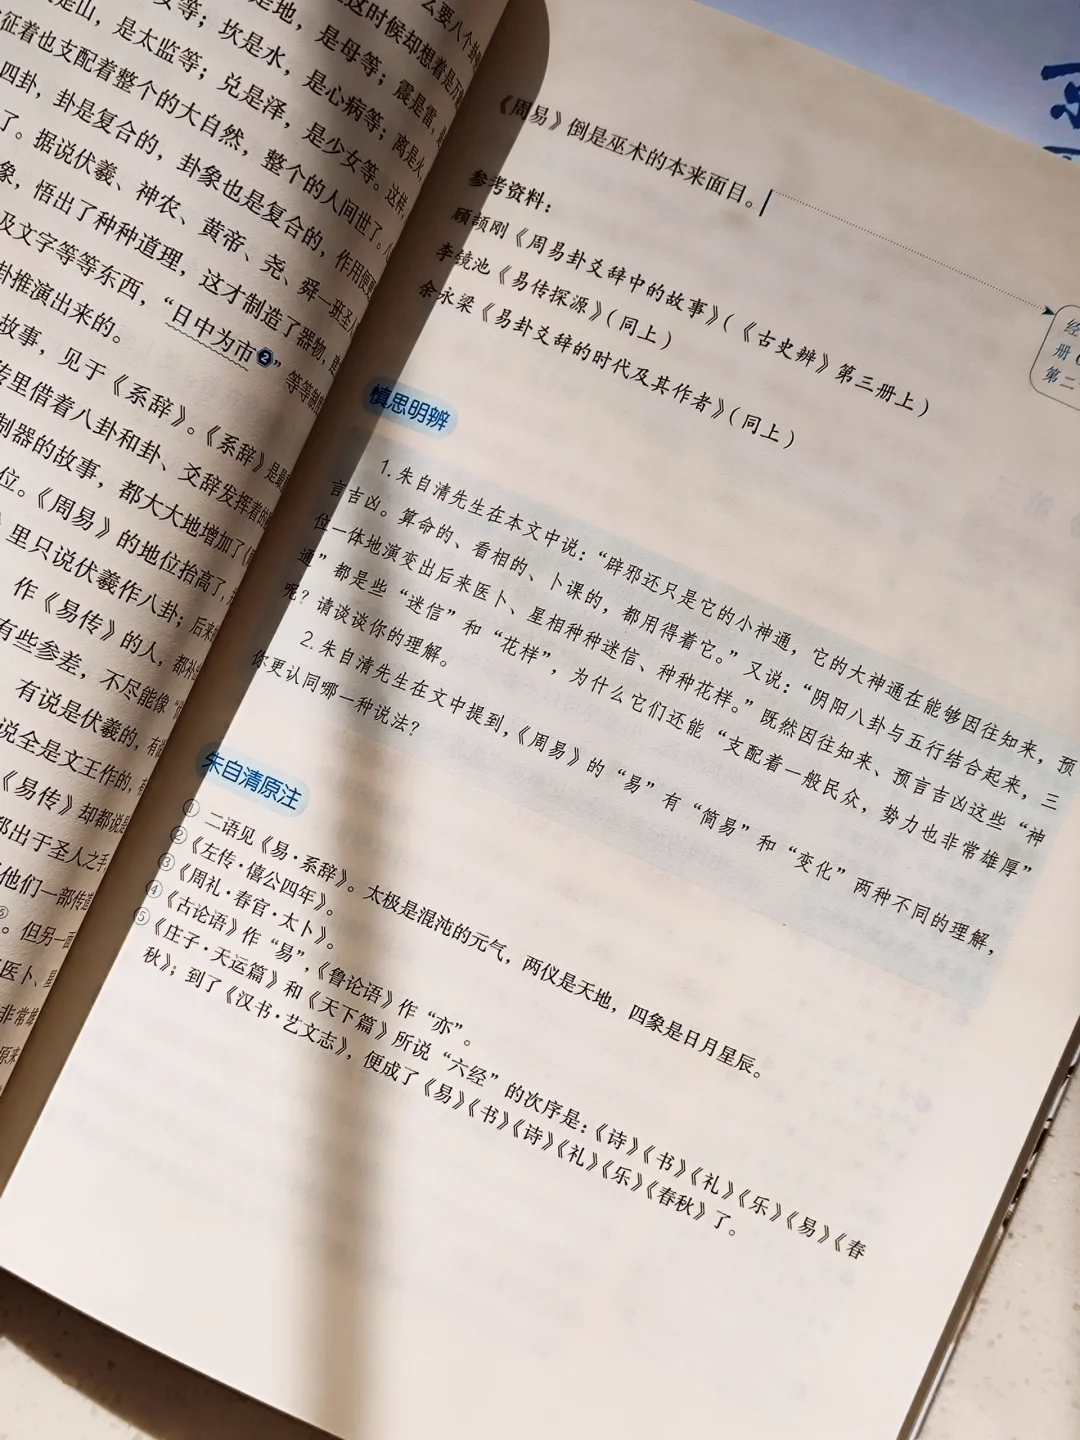 么要八个卦
是地，是母等；震是雷，是
是山，是太监等；兑是泽，是少女等。这样，
征着也支配着整个的大自然，整个的人间世了。八
四卦，卦是复合的，卦象也是复合的，作用便更
了。据说伏羲、神农、黄帝、尧、舜一班圣
象，悟出了种种道理，这才制造了器物，建
及文字等等东西，“日中为市❷”等等制度
卦推演出来的。
故事，见于《系辞》。《系辞》是最
传里借着八卦和卦、爻辞发挥着的
制器的故事，都大大地增加了
位。《周易》的地位抬高了，
》里只说伏羲作八卦；后来
作《易传》的人，都补
有些参差，不尽能像
有说是伏羲的，有说
说全是文王作的，
《易传》却都说是
都出于圣人之手
他们一部传
⑥。但另一面
医卜、星
非常雄
原来
《周易》倒是巫术的本来面目。
参考资料：
顾颉刚《周易卦爻辞中的故事》（《古史辨》第三册上）
李镜池《易传探源》（同上）
余永梁《易卦爻辞的时代及其作者》（同上）
经
册
第二
慎思明辨
1. 朱自清先生在本文中说：“辟邪还只是它的小神通，它的大神通在能够因往知来，预
言吉凶。算命的、看相的、卜课的，都用得着它。”又说：“阴阳八卦与五行结合起来，三
位一体地演变出后来医卜、星相种种迷信、种种花样。”既然因往知来、预言吉凶这些“神
通”都是些“迷信”和“花样”，为什么它们还能“支配着一般民众，势力也非常雄厚”
呢？请谈谈你的理解。
2. 朱自清先生在文中提到，《周易》的“易”有“简易”和“变化”两种不同的理解，
你更认同哪一种说法？
朱自清原注
① 二语见《易·系辞》。太极是混沌的元气，两仪是天地，四象是日月星辰。
②《左传·僖公四年》。
③《周礼·春官·太卜》。
④《古论语》作“易”，《鲁论语》作“亦”。
⑤《庄子·天运篇》和《天下篇》所说“六经”的次序是：《诗》《书》《礼》《乐》《易》《春
秋》；到了《汉书·艺文志》，便成了《易》《书》《诗》《礼》《乐》《春秋》了。